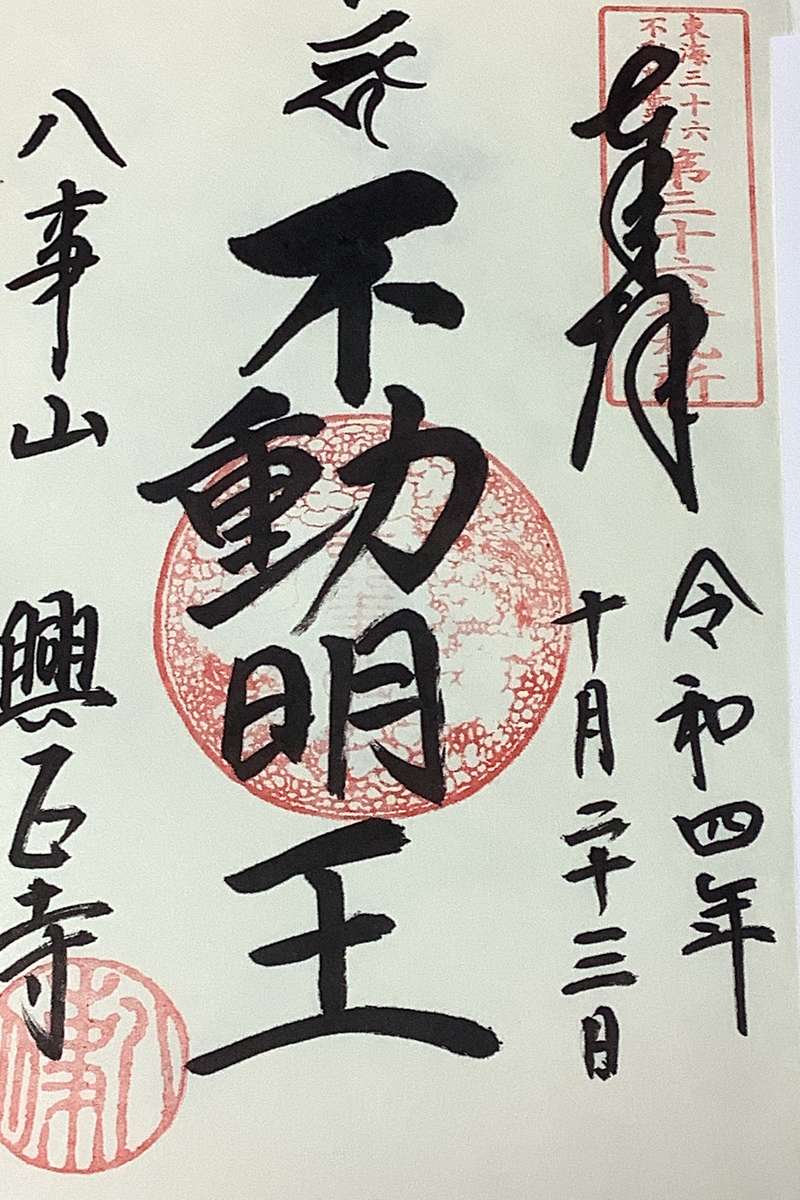 東海三十六
不動尊霊場
第三十六番札所
奉拝
令和四年
十月二十三日
不動明王
八事山 興正寺